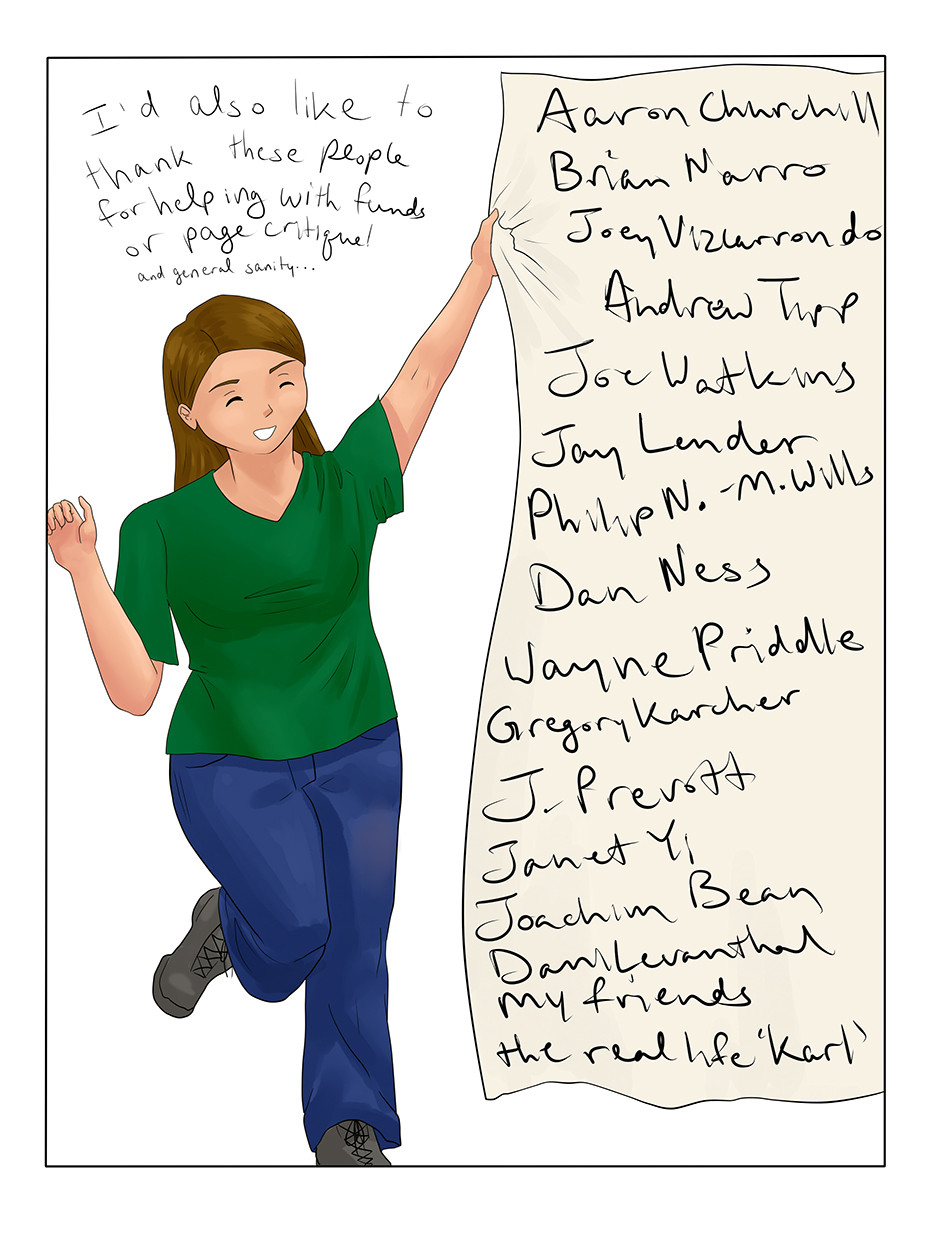 I'd also like to
thank these people
for helping with funds
or page critique!
and general sanity...
Aaron Churchill
Brian Marro
Joey Vizcarrondo
Andrew Tipp
Joe Watkins
Jay Lender
Philip N.-M. Wills
Dan Ness
Wayne Priddle
Gregory Karcher
J. Prevott
Janet Yi
Joachim Bean
Levanthal
my friends
the real life 'Karl'